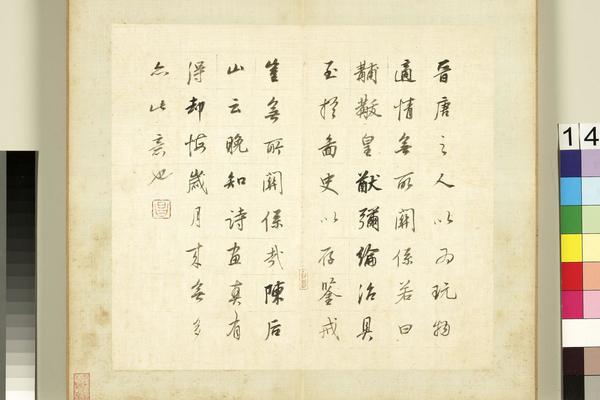 晉唐之人以為玩物
適情無所關係若曰
黼黻皇猷彌綸治具
至於圖史以存鑒戒
豈無所關係哉陳后
山云晚知詩畫真有
得却悔歲月來無多
亦此意也
14